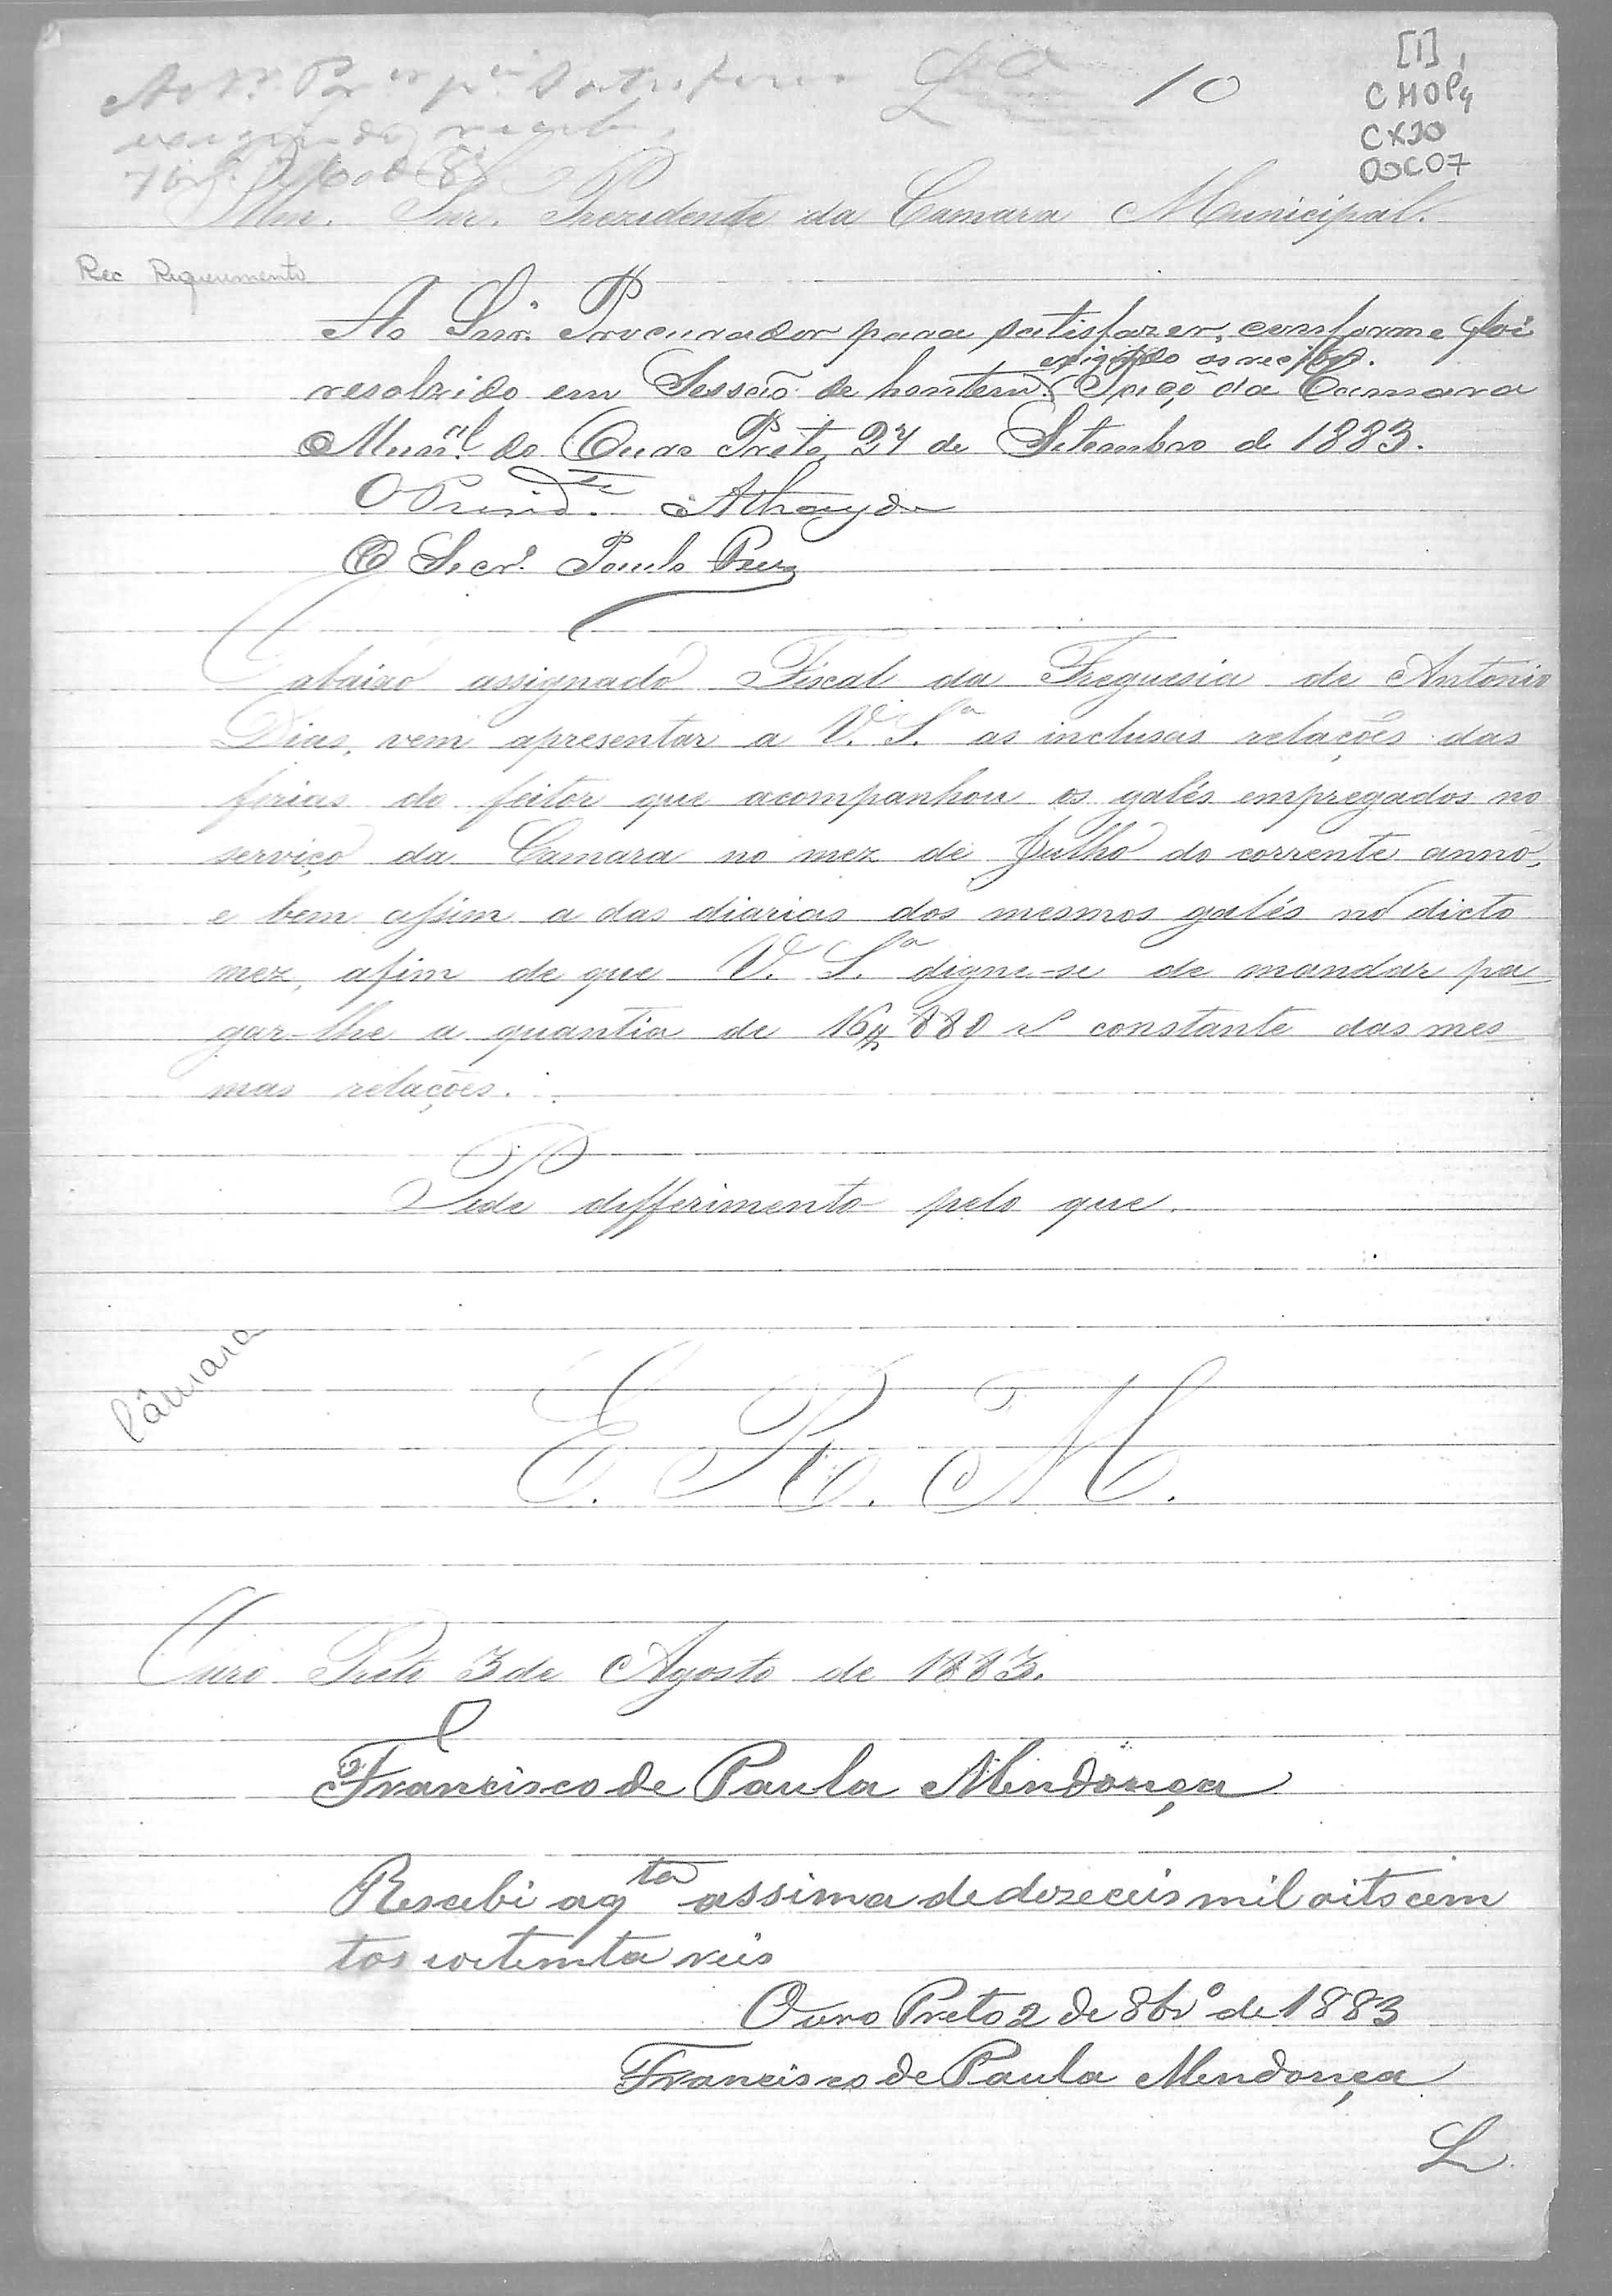 [1]
10
CMOP4
CX20
DOC07
Illm. Snr. Prezidente da Camara Municipal.
Rec Requerimento
Ao Snr. Procurador para satisfazer, conforme foi
exigindo os recibos.
resolvido em Sessão de hontem. Paço da Camara
Munal. do Ouro Preto, 27 de Setembro de 1883.
O Presidte. Athayde
O Secro. Paulo
O abaixo assignado Fiscal da Freguesia de Antonio
Dias, vem apresentar a V. Sa. as inclusas relações das
ferias do feitor que acompanhou os galés empregados no
serviço da Camara no mez de Julho do corrente anno,
e bem assim a das diarias dos mesmos galés no dicto
mez, afim de que V. Sa. digne-se de mandar pa-
gar-lhe a quantia de 16$880 rs constante das mes-
mas relações.
Pede differimento pelo que
Câmara
E. R. M.
Ouro Preto 3 de Agosto de 1883.
Francisco de Paula Mendonça
Rescebi a qta assima de dezeceis mil oitocem
tos eoitemta reis
Ouro Preto 2 de 8bro de 1883
Francisco de Paula Mendonça
L